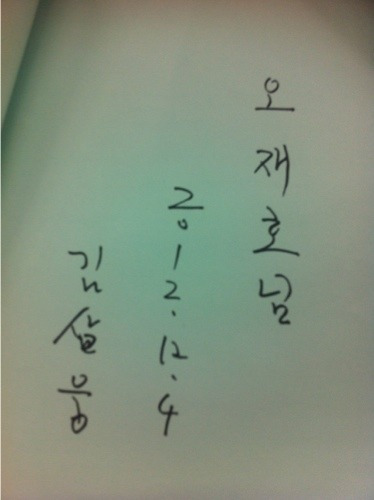 오재호님
2012.12.4
김삼웅